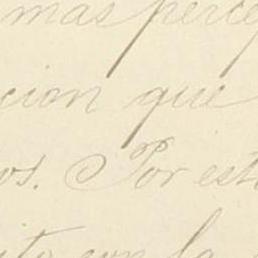 mas perce
cion que
os. Por est
ito con la